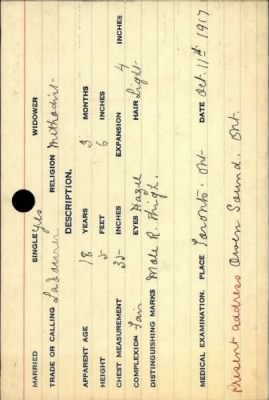 MARRIED SINGLE Yes WIDOWER
TRADE OR CALLING Labourer RELIGION Methodist
DESCRIPTION.
APPARENT AGE 18 YEARS 3 MONTHS
HEIGHT 5 FEET 6 INCHES
CHEST MEASUREMENT 35 INCHES EXPANSION 4 INCHES
COMPLEXION Fair EYES Hazel HAIR Light
DISTINGUISHING MARKS Mole R. Thigh.
MEDICAL EXAMINATION. PLACE Toronto. Ont- DATE Oct. 11th 1917
Present address Owen Sound. Ont.